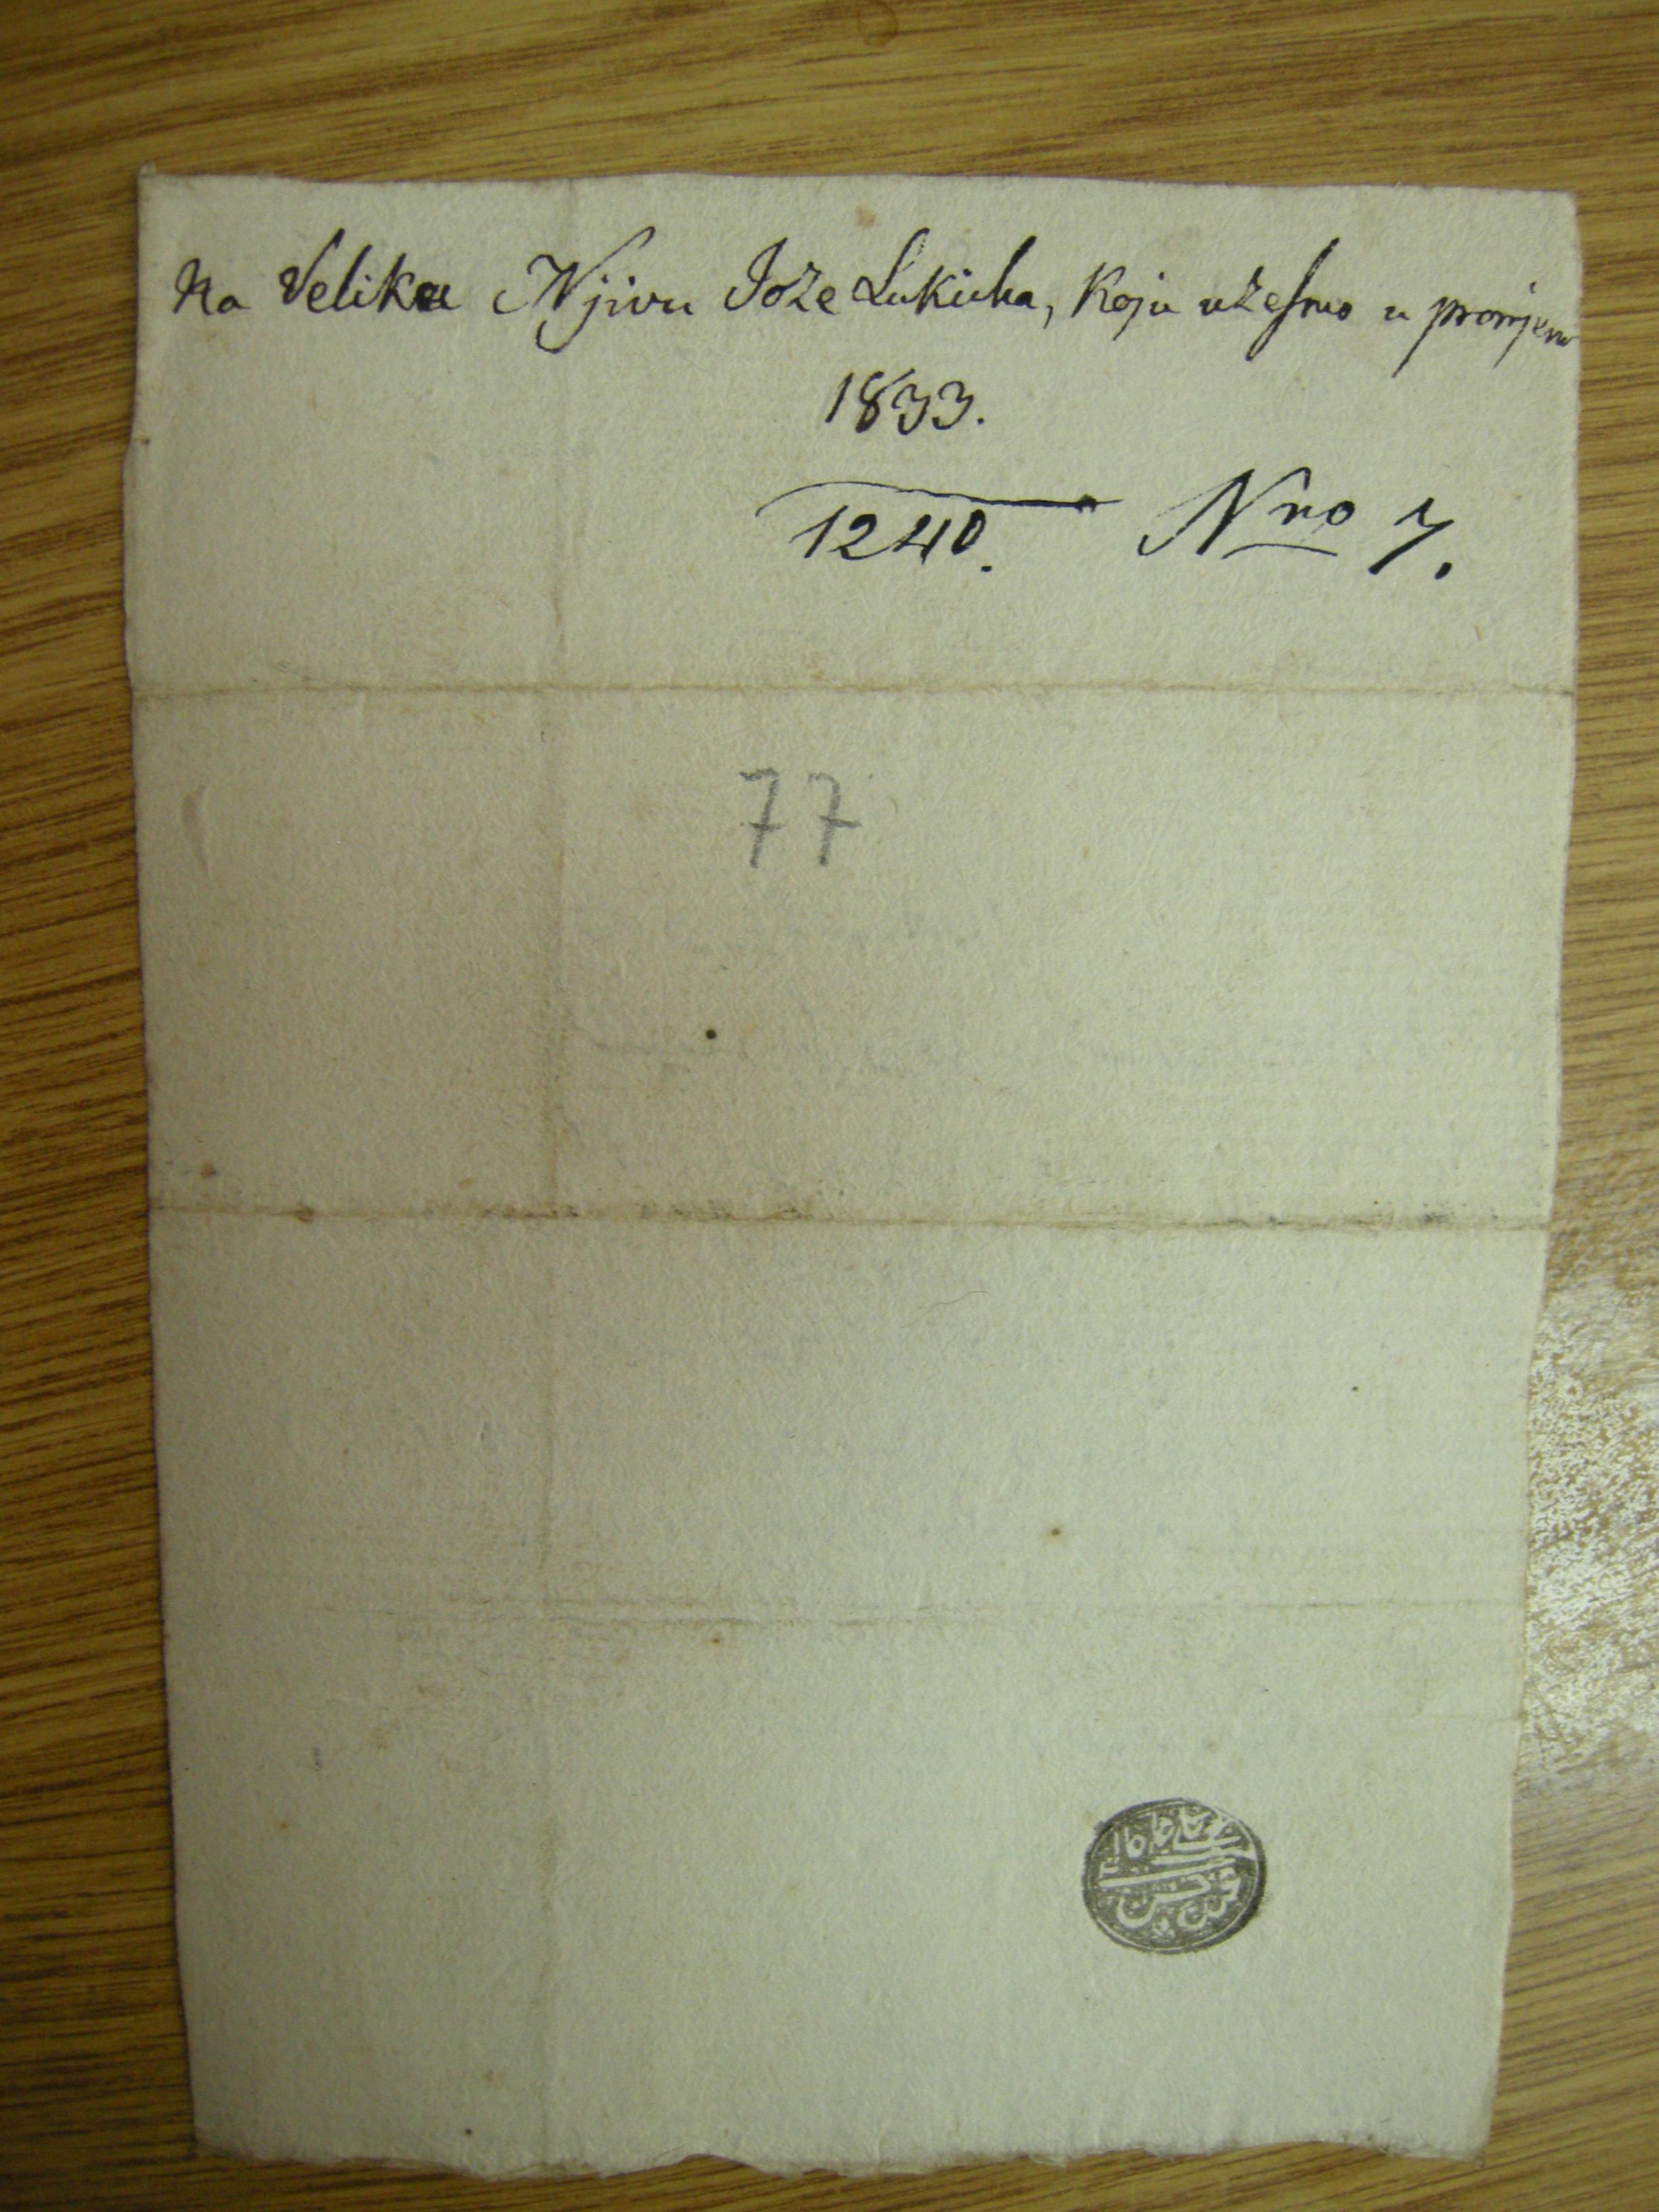 Na Veliku Njivu Joze Lukicha, Koju uzesmo u promjenu
1833.
1240. Nro 7.
77